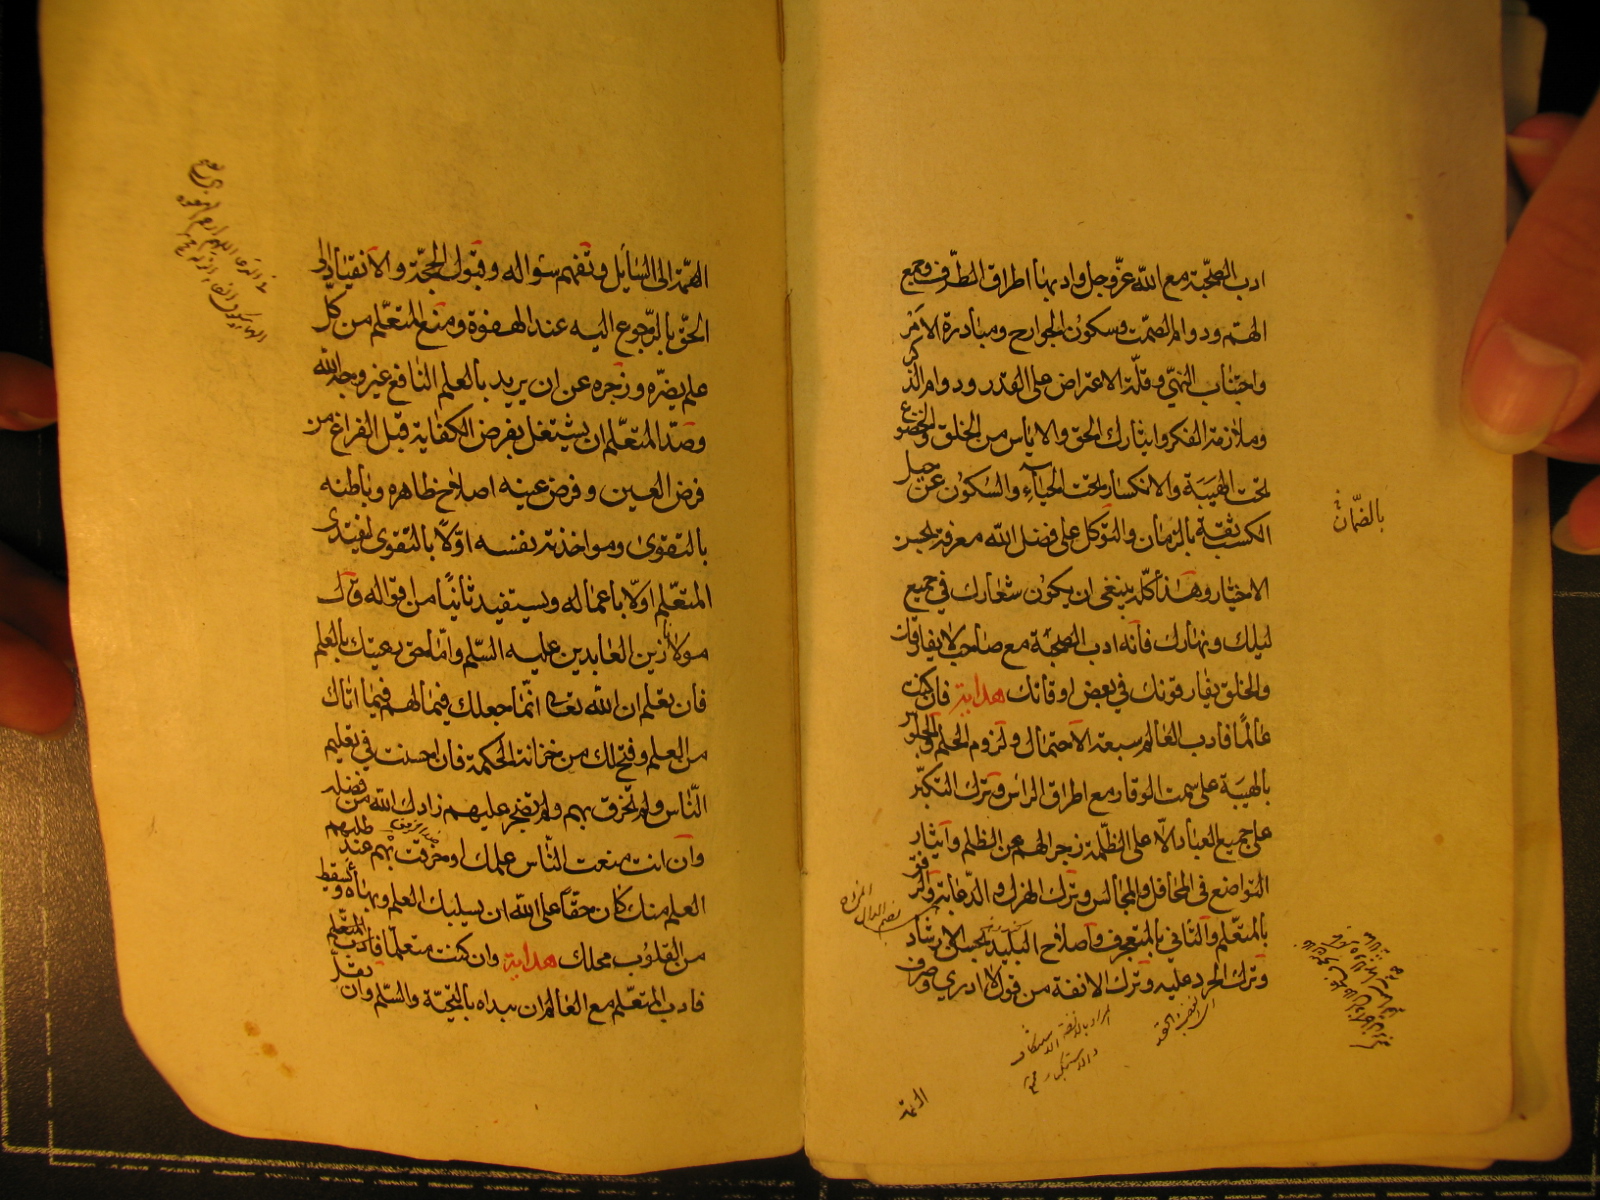 ادب الصحبة مع الله عزّوجل وادبها اطراق الطرف وجمع
الهتم ودوام الصّمت وسكون الجوارح ومبادرة الامر
واجتناب النهي وقلّة الاعتراض على القدر ودوام الذكر
وملازمة الفكر وايثارك الحق والاياس من الخلق والخضوع
تحت الهيبة والانكسار تحت الحياء والسكون عن حيل
الكسب ثقة بالزمان والتوكل على فضل الله معرفة بحسن
الاختيار وهذا كلّه ينبغي ان يكون شعارك في جميع
ليلك ونهارك فانه ادب الصحبة مع صاحب لا يفارقك
والخلق يفارقونك في بعض اوقاتك هداية فان كنت
عالماً فادب العالم سبعة الاحتمال ولزوم الحلم والجلوس
بالهيبة على سمت الوقار مع اطراق الراس وترك التكبّر
على جميع العباد الّا على الظلمة زجرا لهم عن الظلم وايثار
التواضع في المحافل والمجالس وترك الهزل والدّعابة والرفق
بالمتعلّم والتأني بالمتعجرف واصلاح البليد بحسن الارشاد
وترك الحرد عليه وترك الانفة من قول لا ادري وصرف
بالضّمان
اي الغضب الحقد
المراد بالانفة الاستنكاف
والاستكبار
الهمّة
الهمّة الى السّايل وتفهم سؤاله وقبول الحجّة والانقياد الى
الحقّ بالرّجوع اليه عند الهفوة ومنع المتعلّم من كلّ
علم يضرّه وزجره عن ان يريد بالعلم النافع غير وجه الله
وصدّ المتعلّم ان يشتغل بفرض الكفاية قبل الفراغ من
فرض العين وفرض عينه اصلاح ظاهره وباطنه
بالتقوى ومواخذته نفسه اوّلاً بالتقوى ليقتدى
المتعلّم اوّلا باعماله ويستفيد ثانياً من اقواله قال
مولانا زين العابدين عليه السّلم وامّا حق رعيتك بالعلم
فان تعلم ان الله تعالى انّما جعلك قيّما لهم فيما اتاك
من العلم وفتح لك من خزانة الحكمة فان احسنت في تعليم
النّاس ولم تخرق بهم ولم تضجر عليهم زادك الله من فضله
وان انت منعت النّاس علمك او خرقت بهم عند طلبهم
العلم منك كان حقّاً على الله ان يسلبك العلم وبهاءه ويسقط
من القلوب محلك هداية وان كنت متعلّما فادب المتعلّم
فادب المتعلّم مع العالم ان يبداه بالتحيّة والسّلم وان يقلّ